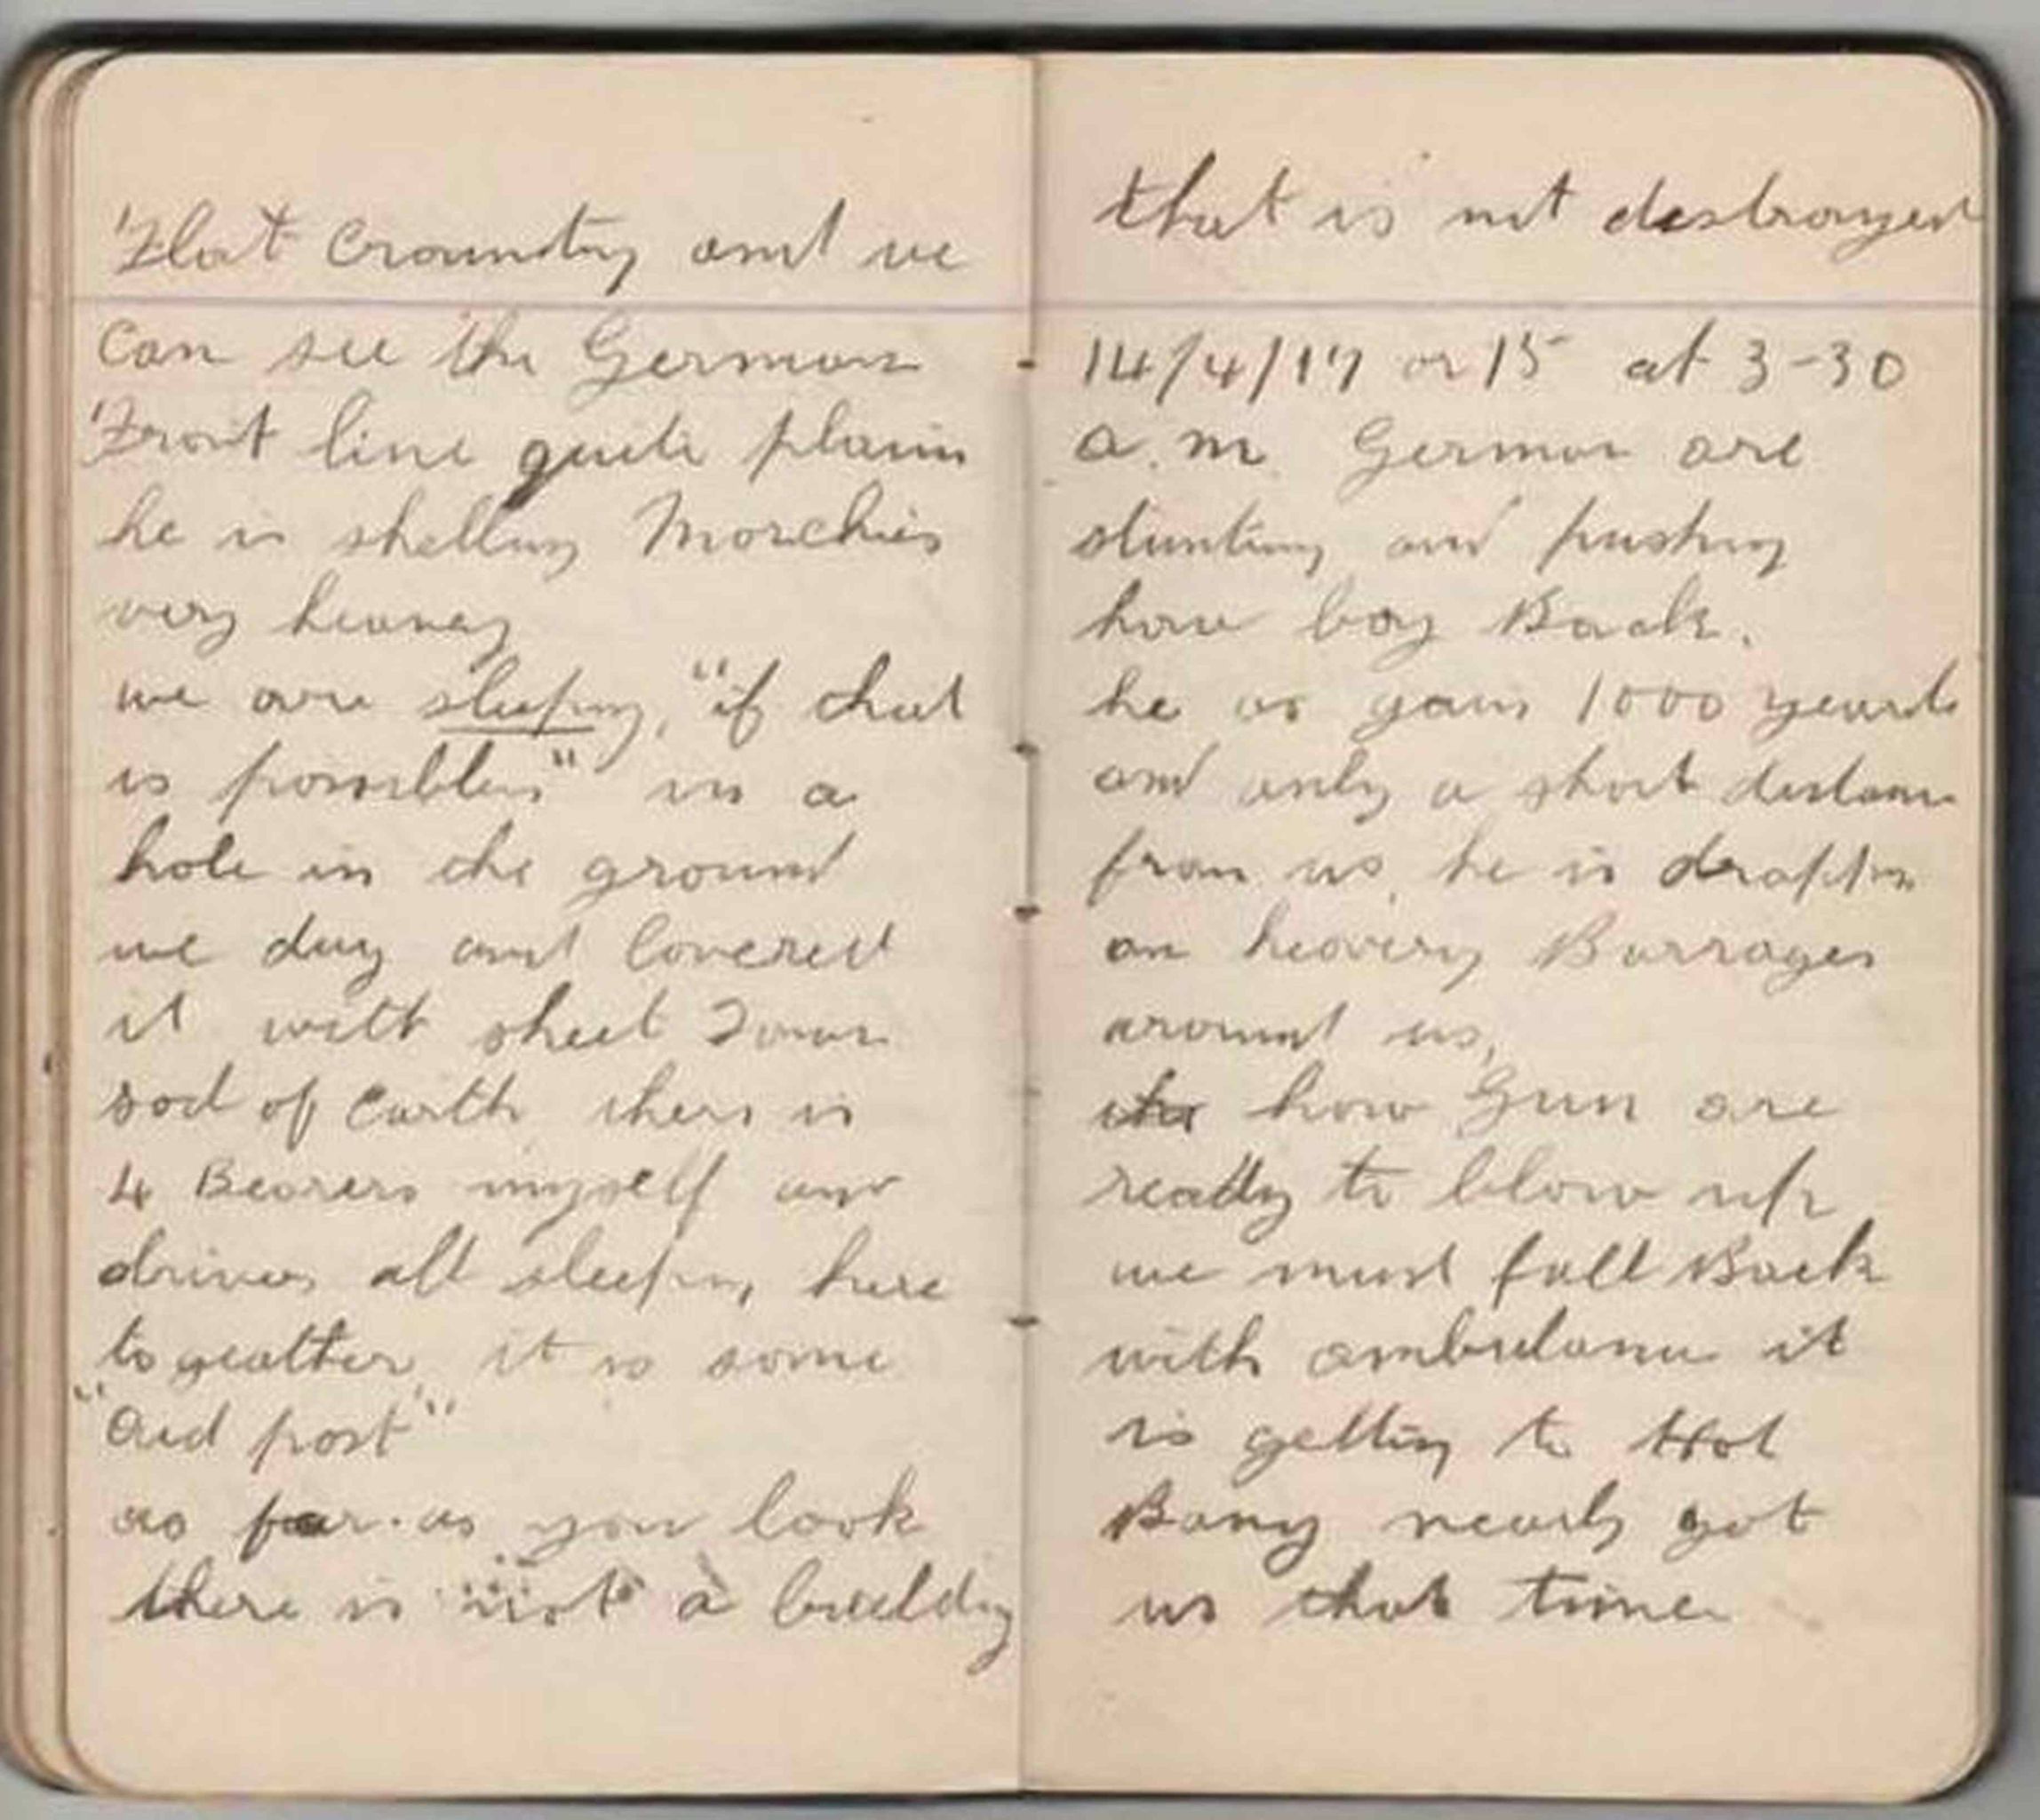 Flat Crountry and we
can see the German
Front line quite plain
he is shelling Morchies
very heavey
we are sleeping, "if that
is possible" in a
hole in the ground
we dug and Covered
it with sheet Iron
sod of Earth thers is
4 Bearers myself and
driver all sleeping here
to geather it is some
"Aid post"
as far as you look
there is "not" a building
that is not destroyed
14/4/17 or 15 at 3-30
a.m. German are
stunting and pushing
how boy Back.
he as gain 1000 yeards
and only a short distance
from us, he is dropping
an heavery Barrages
around us,
the how Gun are
ready to blow up
we must fall Back
with ambulance it
is getting to Hot
Bang nearly got
us that time